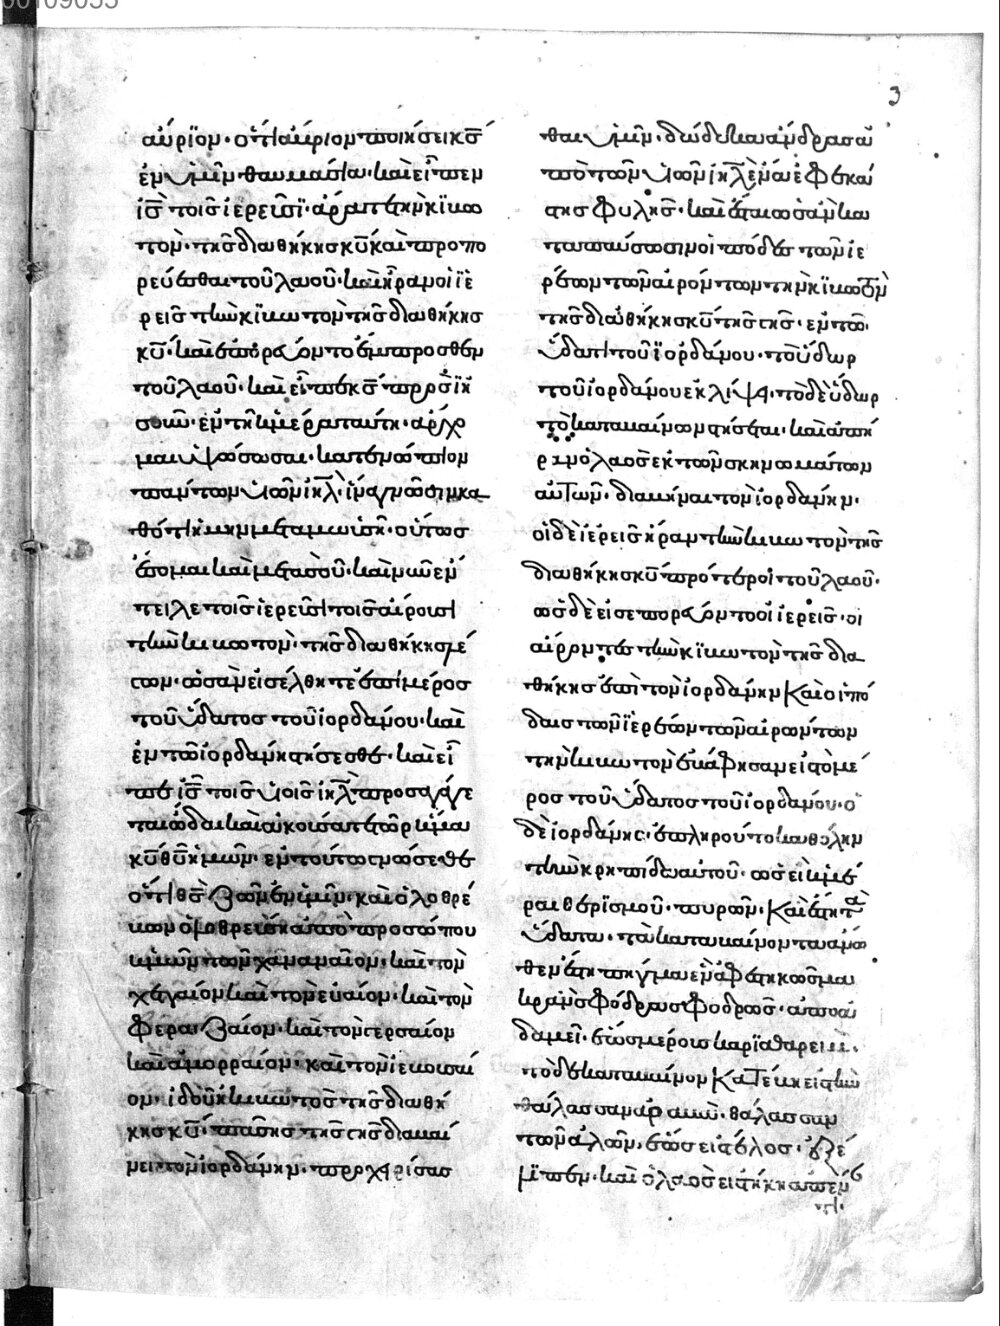 αὔριον· ὅτι αὔριον ποιήσει κ̅ς̅
ἐν ὑμῖν θαυμασία· καὶ εἶπεν
ι̅ς̅ τοῖς ἱερεῦσϊ· ἄρατε τὴν κϊβω
τὸν τῆς διαθήκης κ̅υ̅ καὶ προπο
ρεύεσθαι τοῦ λαοῦ· καὶ ἦραν οἱ ἱε
ρεῖς τὴν κϊβωτὸν τῆς διαθήκης
κ̅υ̅· καὶ ἐπορεύοντο ἔμπροσθεν
τοῦ λαοῦ· καὶ εἶπε κ̅ς̅ πρὸς ἰη
σοῦν· ἐν τῇ ἡμέρα ταύτη· ἄρχο
μαι ὑψώσω σαι κατενώπιον
πάντων υἱῶν ι̅η̅λ̅· ἵνα γνῶσιν κα
θότι ἤμην μετα μωυσῆ· οὕτως
ἔσομαι καὶ μετα σοῦ· καὶ νῦν ἔν
τειλε τοῖς ἱερεῦσι τοῖς αἴρουσι
τὴν κιβωτὸν τῆς διαθήκης λέ
γων· ὡς ἂν εἰσέλθητε ἐπὶ μέρος
τοῦ ὕδατος τοῦ ἰορδάνου· καὶ
ἐν τῶ ἰορδάνη στήσεσθε· καὶ εἶ
πε ι̅ς̅ τοῖς υἱοῖς ι̅η̅λ̅ προσαγάγε
ται ὧδαι καὶ ἀκούσατε τὸ ῥῆμα
κ̅υ̅ θ̅υ̅ ἡμῶν· ἐν τούτω γνώσεσθε
ὅτι θ̅ς̅ ζῶν ἐν ὑμῖν· καὶ ὀλοθρέ
υων ὀλοθρεύσει ἀπὸ προσώπου
ἡμῶν τὸν χαναναῖον· καὶ τὸν
χετταῖον καὶ τὸν εὐαῖον· καὶ τὸν
φεραιζαῖον· καὶ τὸν γεργεσαῖον
καὶ ἀμορραῖον· καὶ τὸν ἰεβουσαῖ
ον· ἰδοὺ ἡ κιβωτὸς τῆς διαθή
κης κ̅υ̅· πάσης τῆς γῆς διαβαί
νει τὸν ἰορδάνην· προχειρίσασ
θαι ὑμῖν· δώδεκα ἄνδρας ἀ
πὸ τῶν υἱῶν ι̅η̅λ̅ ἕνα ἐφ ἑκά
στης φυλῆς· καὶ ἔσται ὡς ἂν κα
ταπαύσωσιν οἱ πόδες τῶν ἱε
ρέων τῶν αἰρόντων τὴν κϊβωτὸν
τῆς διαθήκης κ̅υ̅ τῆς γῆς· ἐν τῶ
ὕδατι τοῦ ἰορδάνου· τὸ ὕδωρ
τοῦ ἰορδάνου ἐκλίψει· τὸ δὲ ὕδωρ
τὸ καταβαίνων στήσεται· καὶ ἀπῆ
ρεν ὁ λαὸς ἐκ τῶν σκηνωμάτων
αὐτῶν· διαβῆναι τὸν ἰορδάνην·
οἱ δὲ ἱερεῖς ἦραν τὴν κιβωτὸν τῆς
διαθήκης κ̅υ̅ πρότεροι τοῦ λαοῦ·
ὡς δὲ εἰσεπορεύοντο οἱ ἱερεῖς· οἱ
αἴροντες τὴν κϊβωτὸν τῆς δια
θήκης ἐπὶ τὸν ἰορδάνην καὶ οἱ πό
δαις τῶν ἱερέων τῶν αἰρώντων
τὴν κιβωτὸν ἐβάφησαν εἰς τὸ μέ
ρος τοῦ ὕδατος τοῦ ἰορδάνου· ὁ
δὲ ἰορδάνης· ἐπληροῦτο καθόλην
τὴν κρηπίδα αὐτοῦ· ὡσεὶ ἡμέ
ραι θερϊσμοῦ· πυρῶν· καὶ ἔστη τὰ
ὕδατα· τὰ καταβαίνοντα ἄνω
θεν ἔστη πῆγμα ἓν ἀφεστηκῶς μα
κρὰν σφόδρα σφοδρῶς· ἀπὸ ἀ
δαμεῖ· ἕως μέρους καρϊαθαρείμ·
τὸ δὲ καταβαῖνον κατέβη εἰς τὴν
θάλασσαν ἀραβα̅· θάλασσαν
τῶν ἁλῶν, ἕως εἰς τέλος· ἐξέ
λϊπεν· καὶ ὁ λαὸς εἱστήκη ἀπέν
τι·